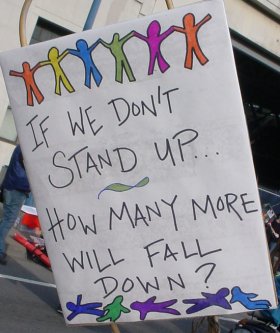 IF WE DON'T
STAND UP...
HOW MANY MORE
WILL FALL
DOWN?